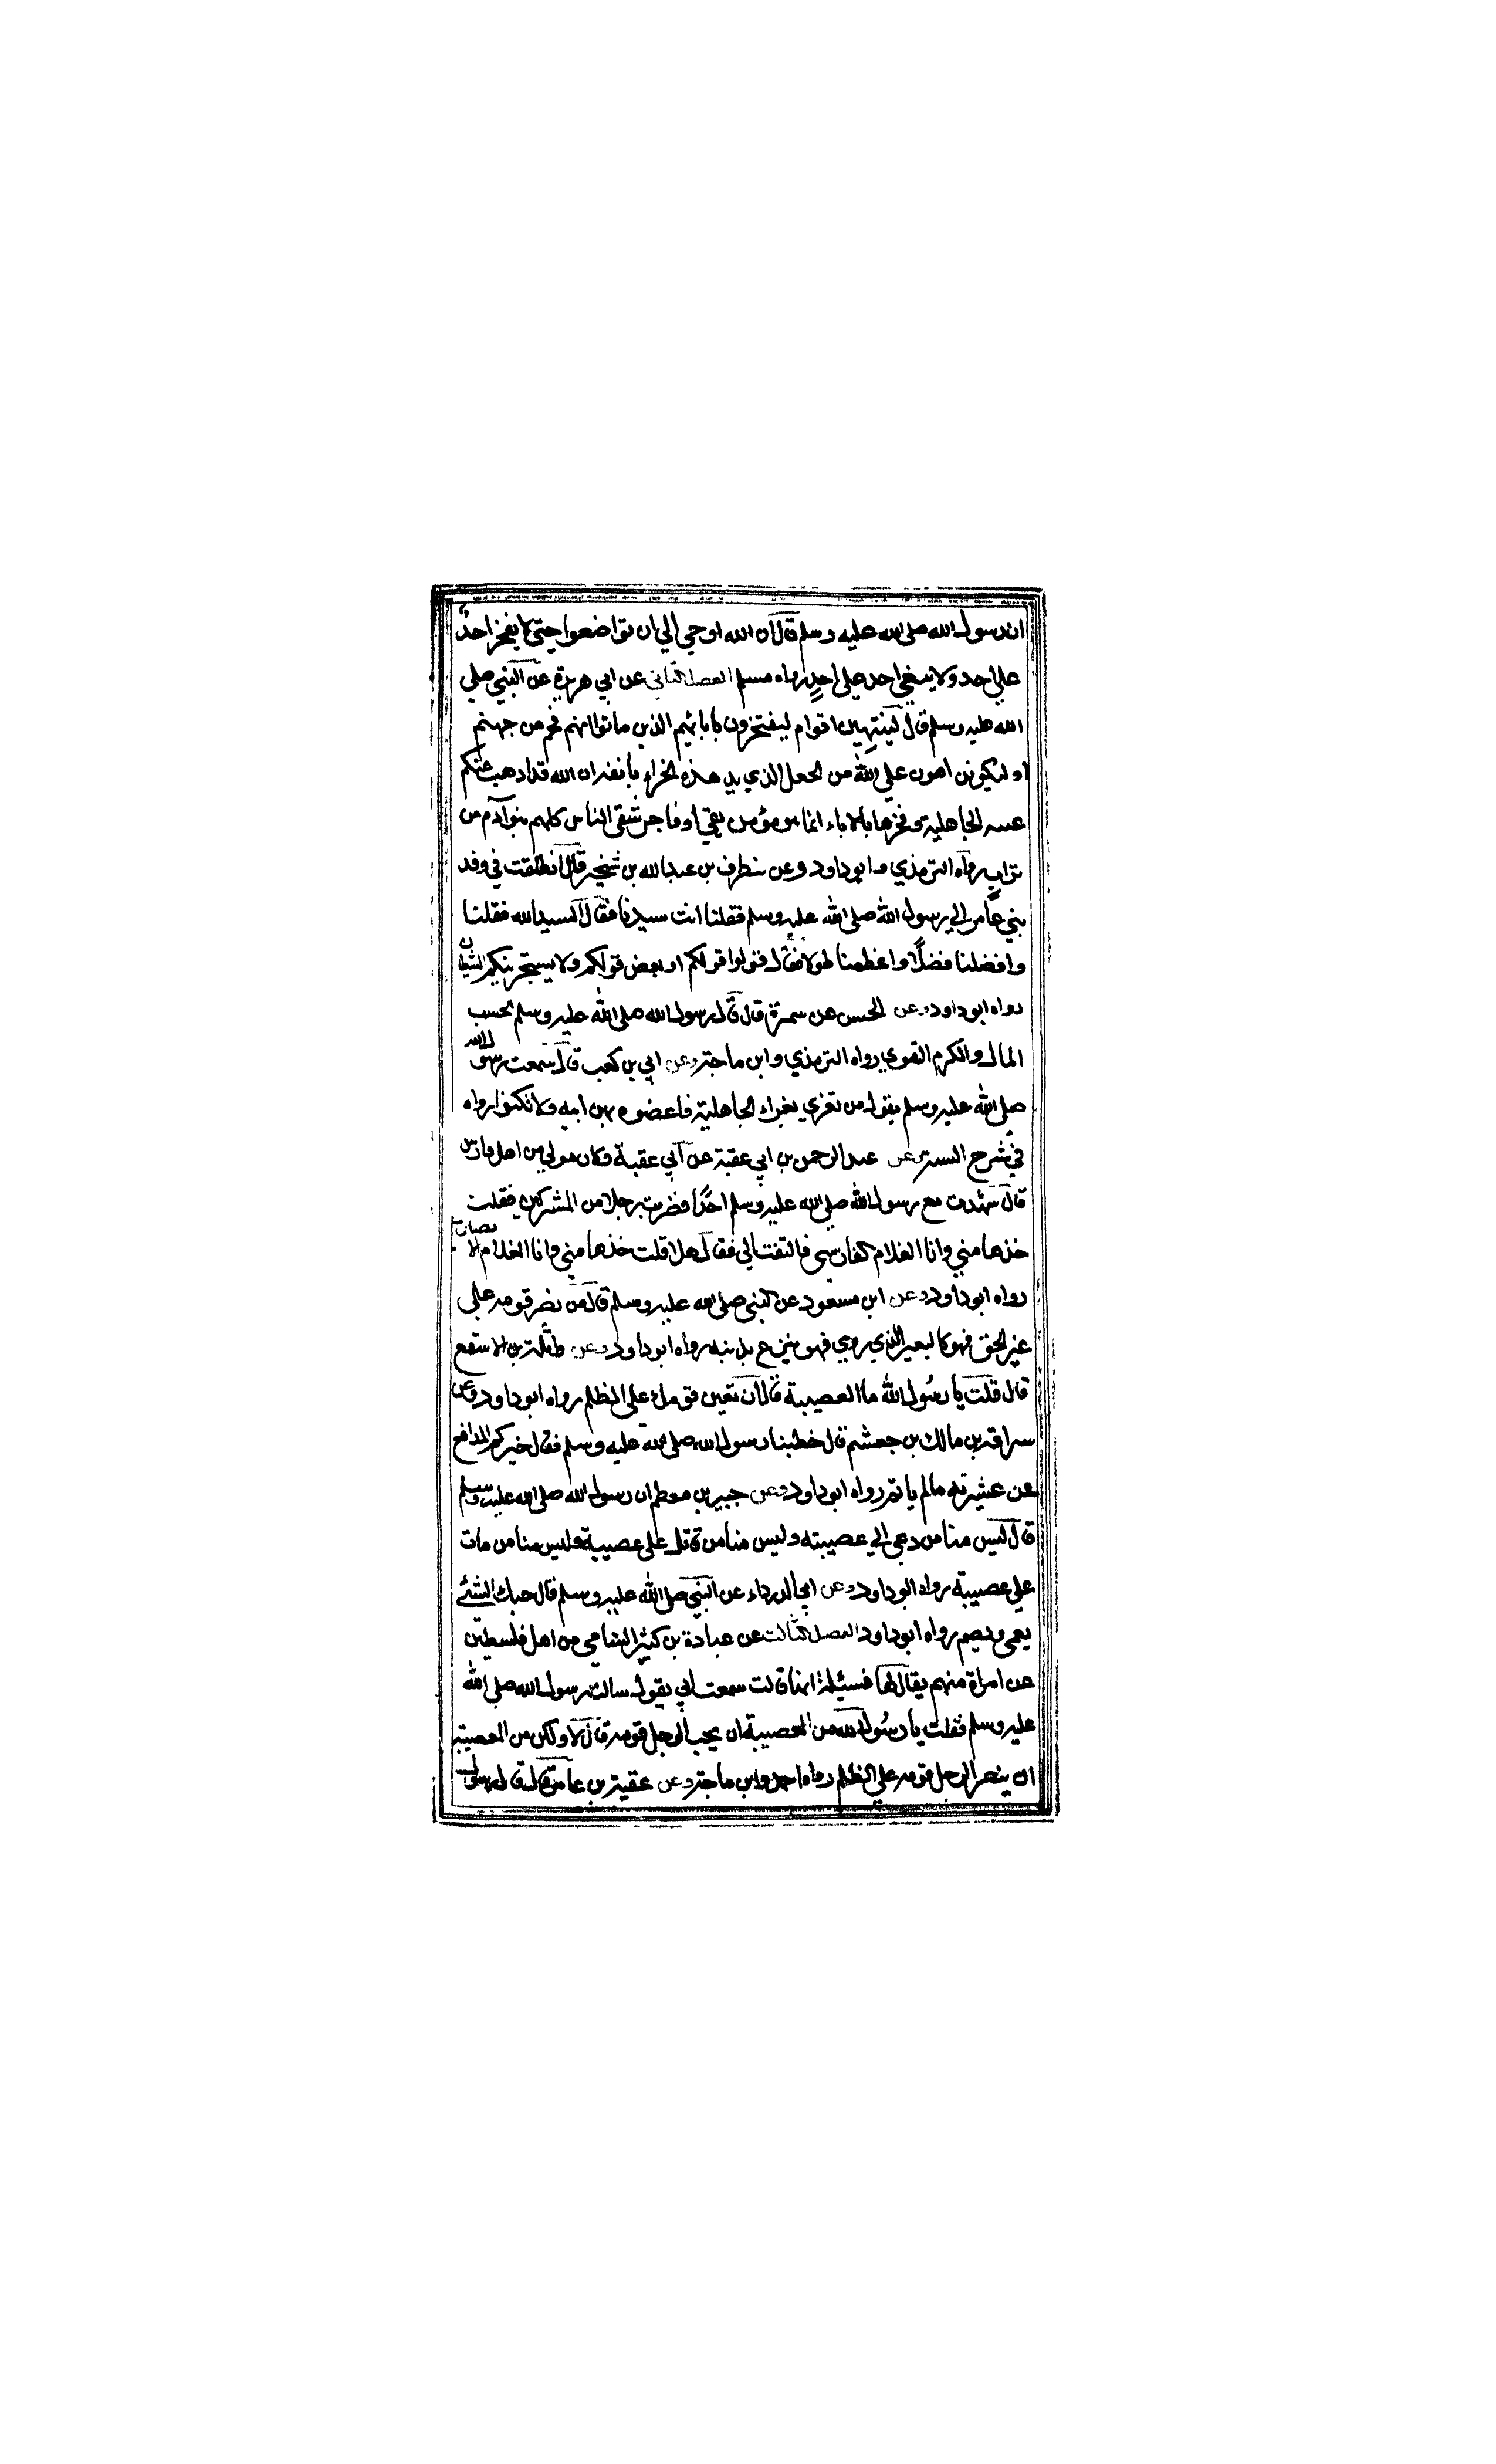 ان رسول الله صلى الله عليه وسلم قال ان الله اوحي الي ان تواضعوا حتي لا يفخر احد
علي احد ولا يبغي احد علي احد رواه مسلم الفصل الثاني عن ابي هريرة عن النبي صلي
الله عليه وسلم قال لينتهين اقوام ليفتخرون بابائهم الذين ماتوا انهم فحم من جهنم
او ليكونن اهون علي الله من الجعل الذي هذه الخراء بانفه ان الله قد اذهب عنكم
عبية الجاهلية وفخرها بالاباء انما هو مؤمن تقي او فاجر شقي الناس كلهم بنو آدم من
تراب رواه الترمذي وابو داود وعن مطرف بن عبدالله بن شخير قال انطلقت في وفد
بني عامر الي رسول الله صلي الله عليه وسلم فقلنا انت سيدنا فقال السيد الله فقلنا
وافضلنا فضلا واعظمنا طولا فقال قولوا قولكم او بعض قولكم ولا يستجرينكم الشيطان
رواه ابو داود وعن الحسن عن سمرة قال قال رسول الله صلى الله عليه وسلم الحسب
المال والكرم التقوي رواه الترمذي وابن ماجة وعن ابي بن كعب قال سمعت رسول الله
صلي الله عليه وسلم يقول من تعزي بعزاء الجاهلية فاعضوه بهن ابيه ولا تكنوا رواه
في شرح السنة وعن عبد الرحمن بن ابي عقبة عن ابي عقبة وكان مولي من اهل فارس
قال شهدت مع رسول الله صلي الله عليه وسلم احدا فضربت رجلا من المشركين فقلت
خذها مني وانا الغلام الفارسي فالتفت الي فقال هلا قلت خذها مني وانا الغلام الانصاري
رواه ابو داود وعن ابن مسعود عن النبي صلى الله عليه وسلم قال من نصر قومه علي
غير الحق فهو كالبعير الذي ردي فهو ينزع بذنبه رواه ابو داود وعن واثلة بن الاسقع
قال قلت يا رسول الله ما العصبية قال ان تعين قومك علي الظلم رواه ابو داود وعن
سراقة بن مالك بن جعشم قال خطبنا رسول الله صلى الله عليه وسلم فقال خيركم المدافع
عن عشيرته مالم ياثم رواه ابو داود وعن جبير بن مطعم ان رسول الله صلى الله عليه وسلم
قال ليس منا من دعي الي عصبية وليس منا من قاتل علي عصبية وليس منا من مات
علي عصبية رواه ابو داود وعن ابي الدرداء عن النبي صلى الله عليه وسلم قال حبك الشئ
يعمي ويصم رواه ابو داود الفصل الثالث عن عبادة بن كثير الشامي من اهل فلسطين
عن امراة منهم يقال لها فسيلة انها قالت سمعت ابي يقول سالت رسول الله صلى الله
عليه وسلم فقلت يا رسول الله من العصبية ان يحب الرجل قومه قال لا ولكن من العصبية
ان ينصر الرجل قومه علي الظلم رواه احمد وابن ماجة وعن عقبة بن عامر قال قال رسول